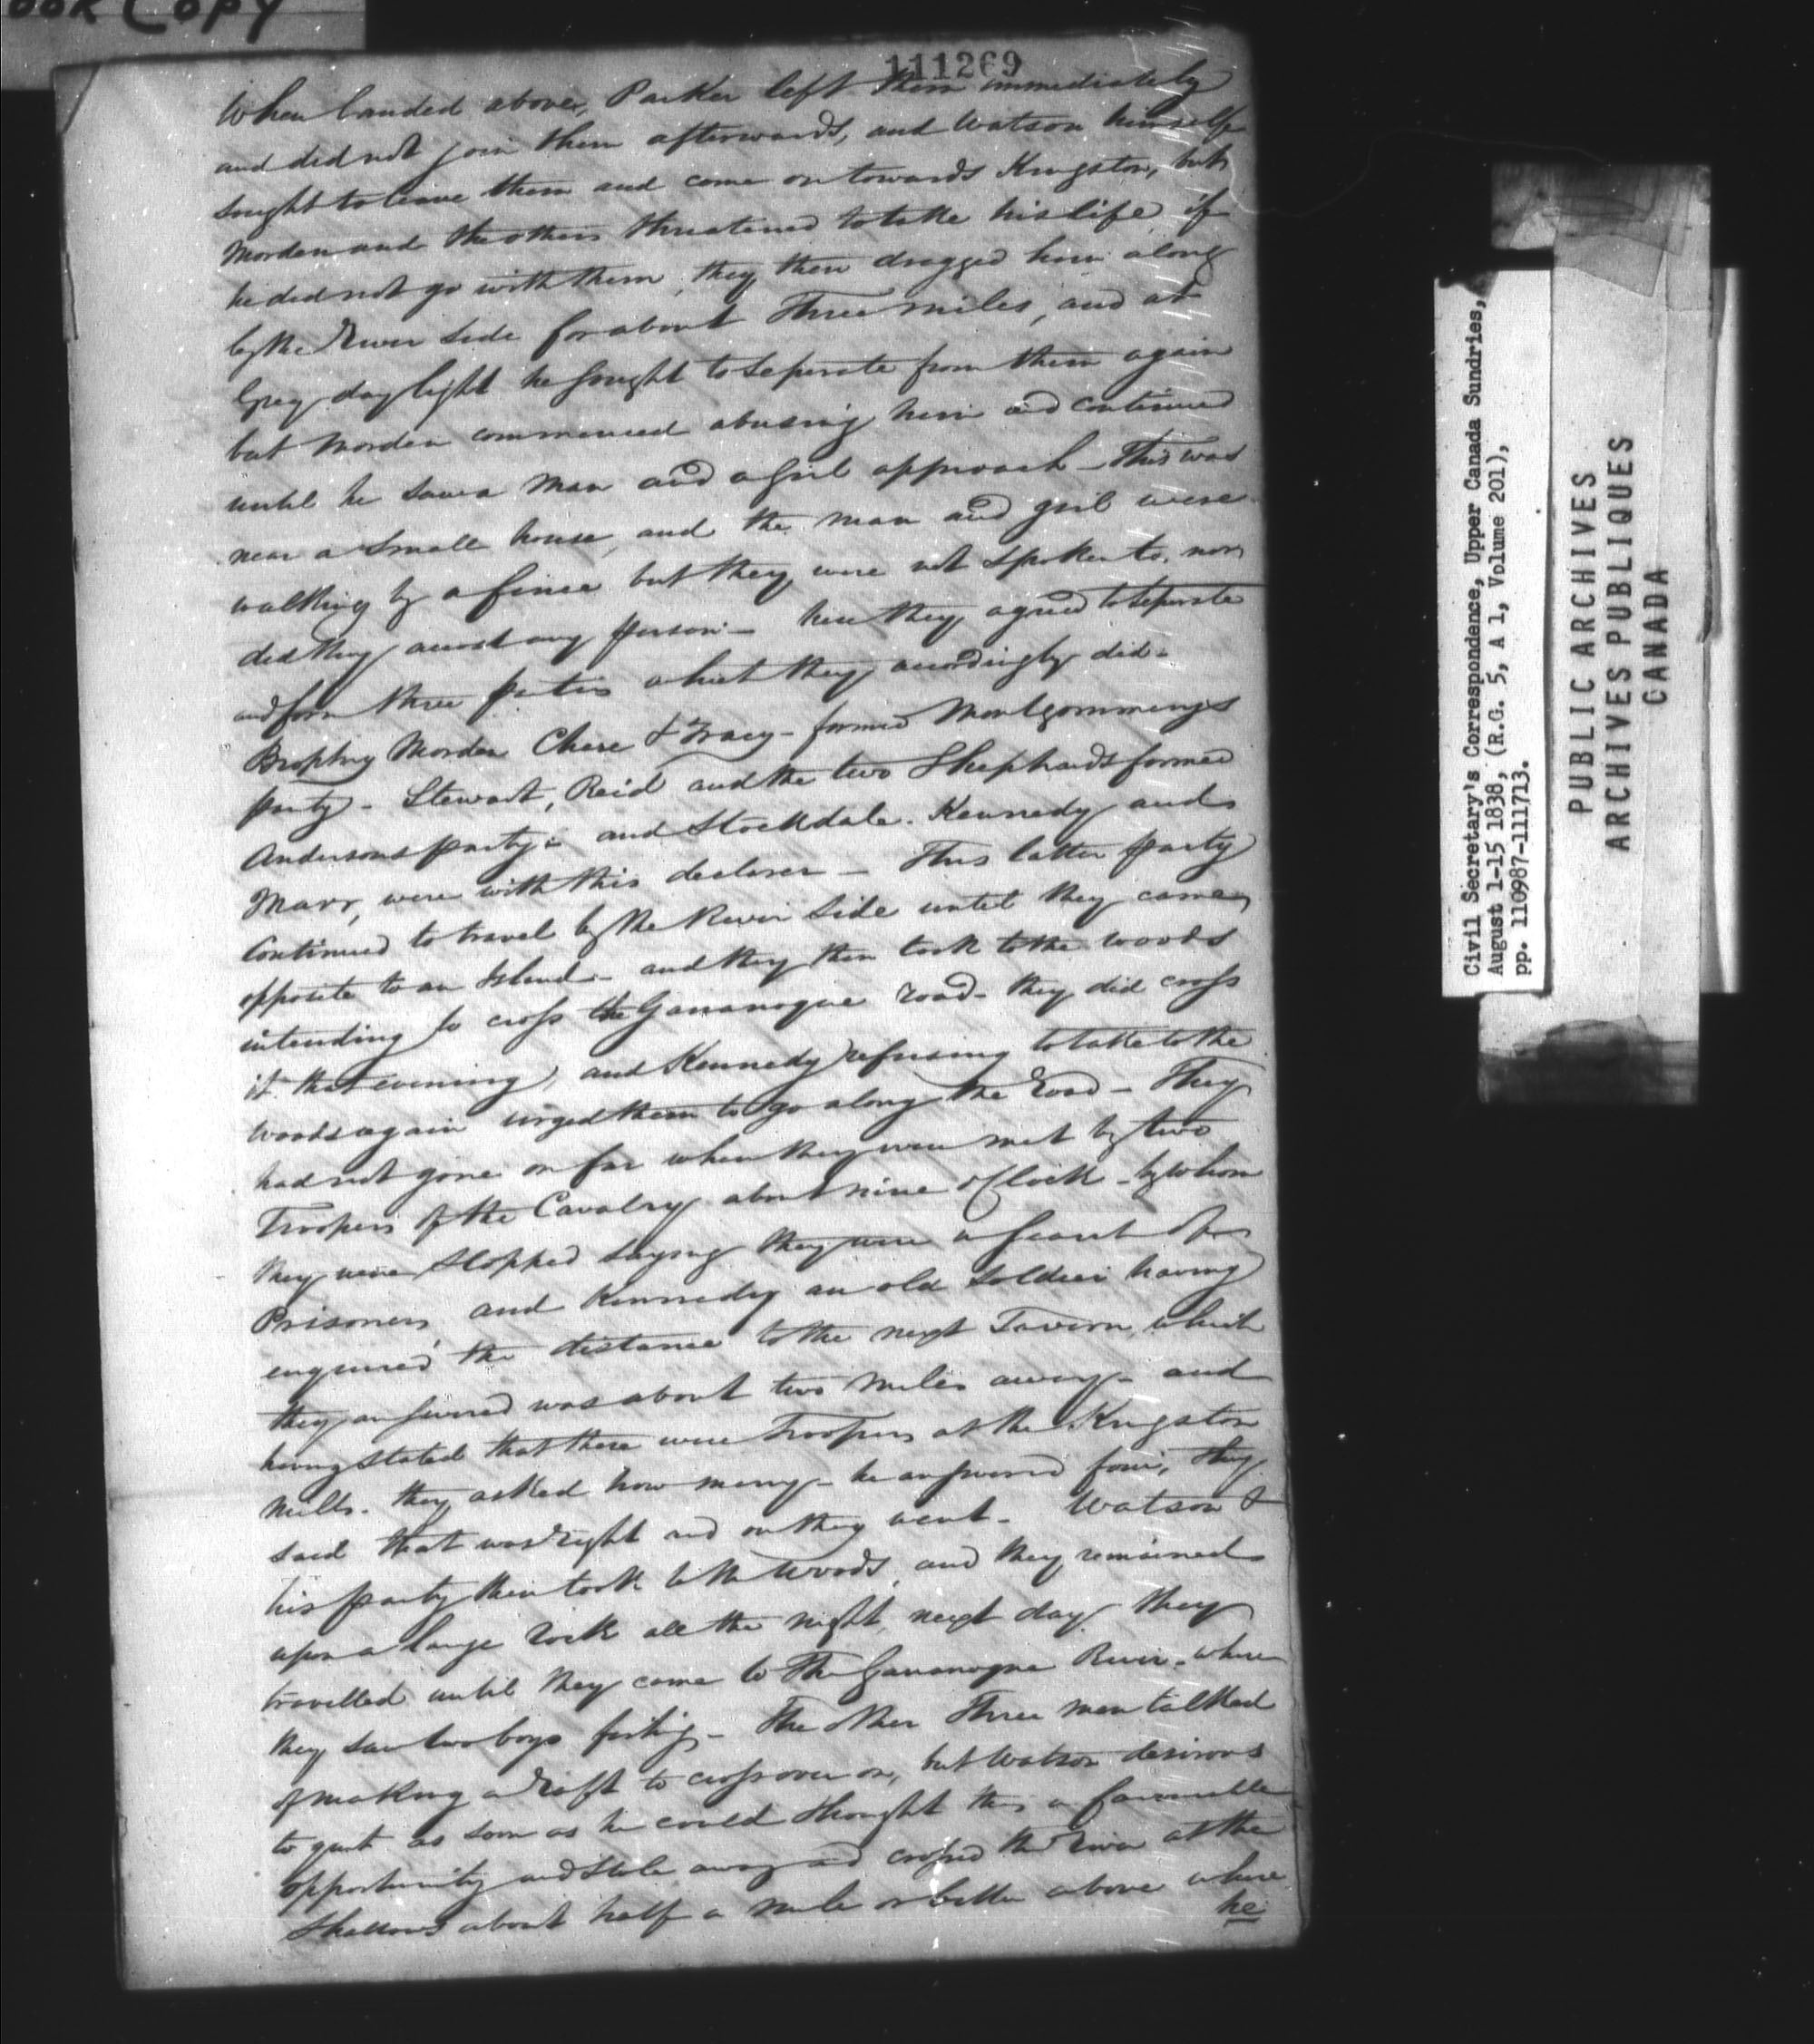 ook Copy
111269
When landed above, Parker left them immediately
and did not join them afterwards, and Watson himself
sought to leave them and come on towards Kingston, but
Morden and the others threatened to take his life if
he did not go with them, they then dragged him along
by the River side for about Three miles, and at
Grey day light he sought to seperate from them again
but Morden commenced abusing him and continued
until he saw a man and a girl approach – This was
near a small house, and the man and girl were
walking by a fence but they were not spoken to, nor
did they accost any person – here they agreed to seperate
and form three parties which they accordingly did –
Brophy Morden Chase & Tracy – formed Montgommery's
party – Stewart, Reid and the two Shephards formed
Andersons party – and Stockdale. Kennedy and
Marr, were with this declarer – This latter party
Continued to travel by the River side until they came
opposite to an Island – and they then took to the woods
intending to cross the Gananoque road – they did cross
it that evening, and Kennedy refusing to take to the
woods again urged them to go along the Road – They
had not gone on far when they were met by two
Troopers of the Cavalry about nine o'Clock – by whom
they were stopped saying they were a scout of
Prisoners and Kennedy an old soldier having
enquired the distance to the next Tavern, which
they answered was about two miles away – and
having stated that there were Troopers at the Kingston
Mills. they asked how many – he answered four, they
said that was right and on they went – Watson &
his party then took to the woods, and they remained
upon a large rock all the night, next day they
travelled until they came to The Gananoque River – where
they saw two boys fishing – The other Three men talked
of making a Raft to cross over on, but Watson desirous
to quit as soon as he could thought this a favourable
opportunity and stole away and crossed the River at the
Shallows about half a mile or better above where
he
Civil Secretary's Correspondence, Upper Canada Sundries,
August 1-15 1838, (R.G. 5, A 1, Volume 201),
pp. 110987-111713.
PUBLIC ARCHIVES
ARCHIVES PUBLIQUES
CANADA